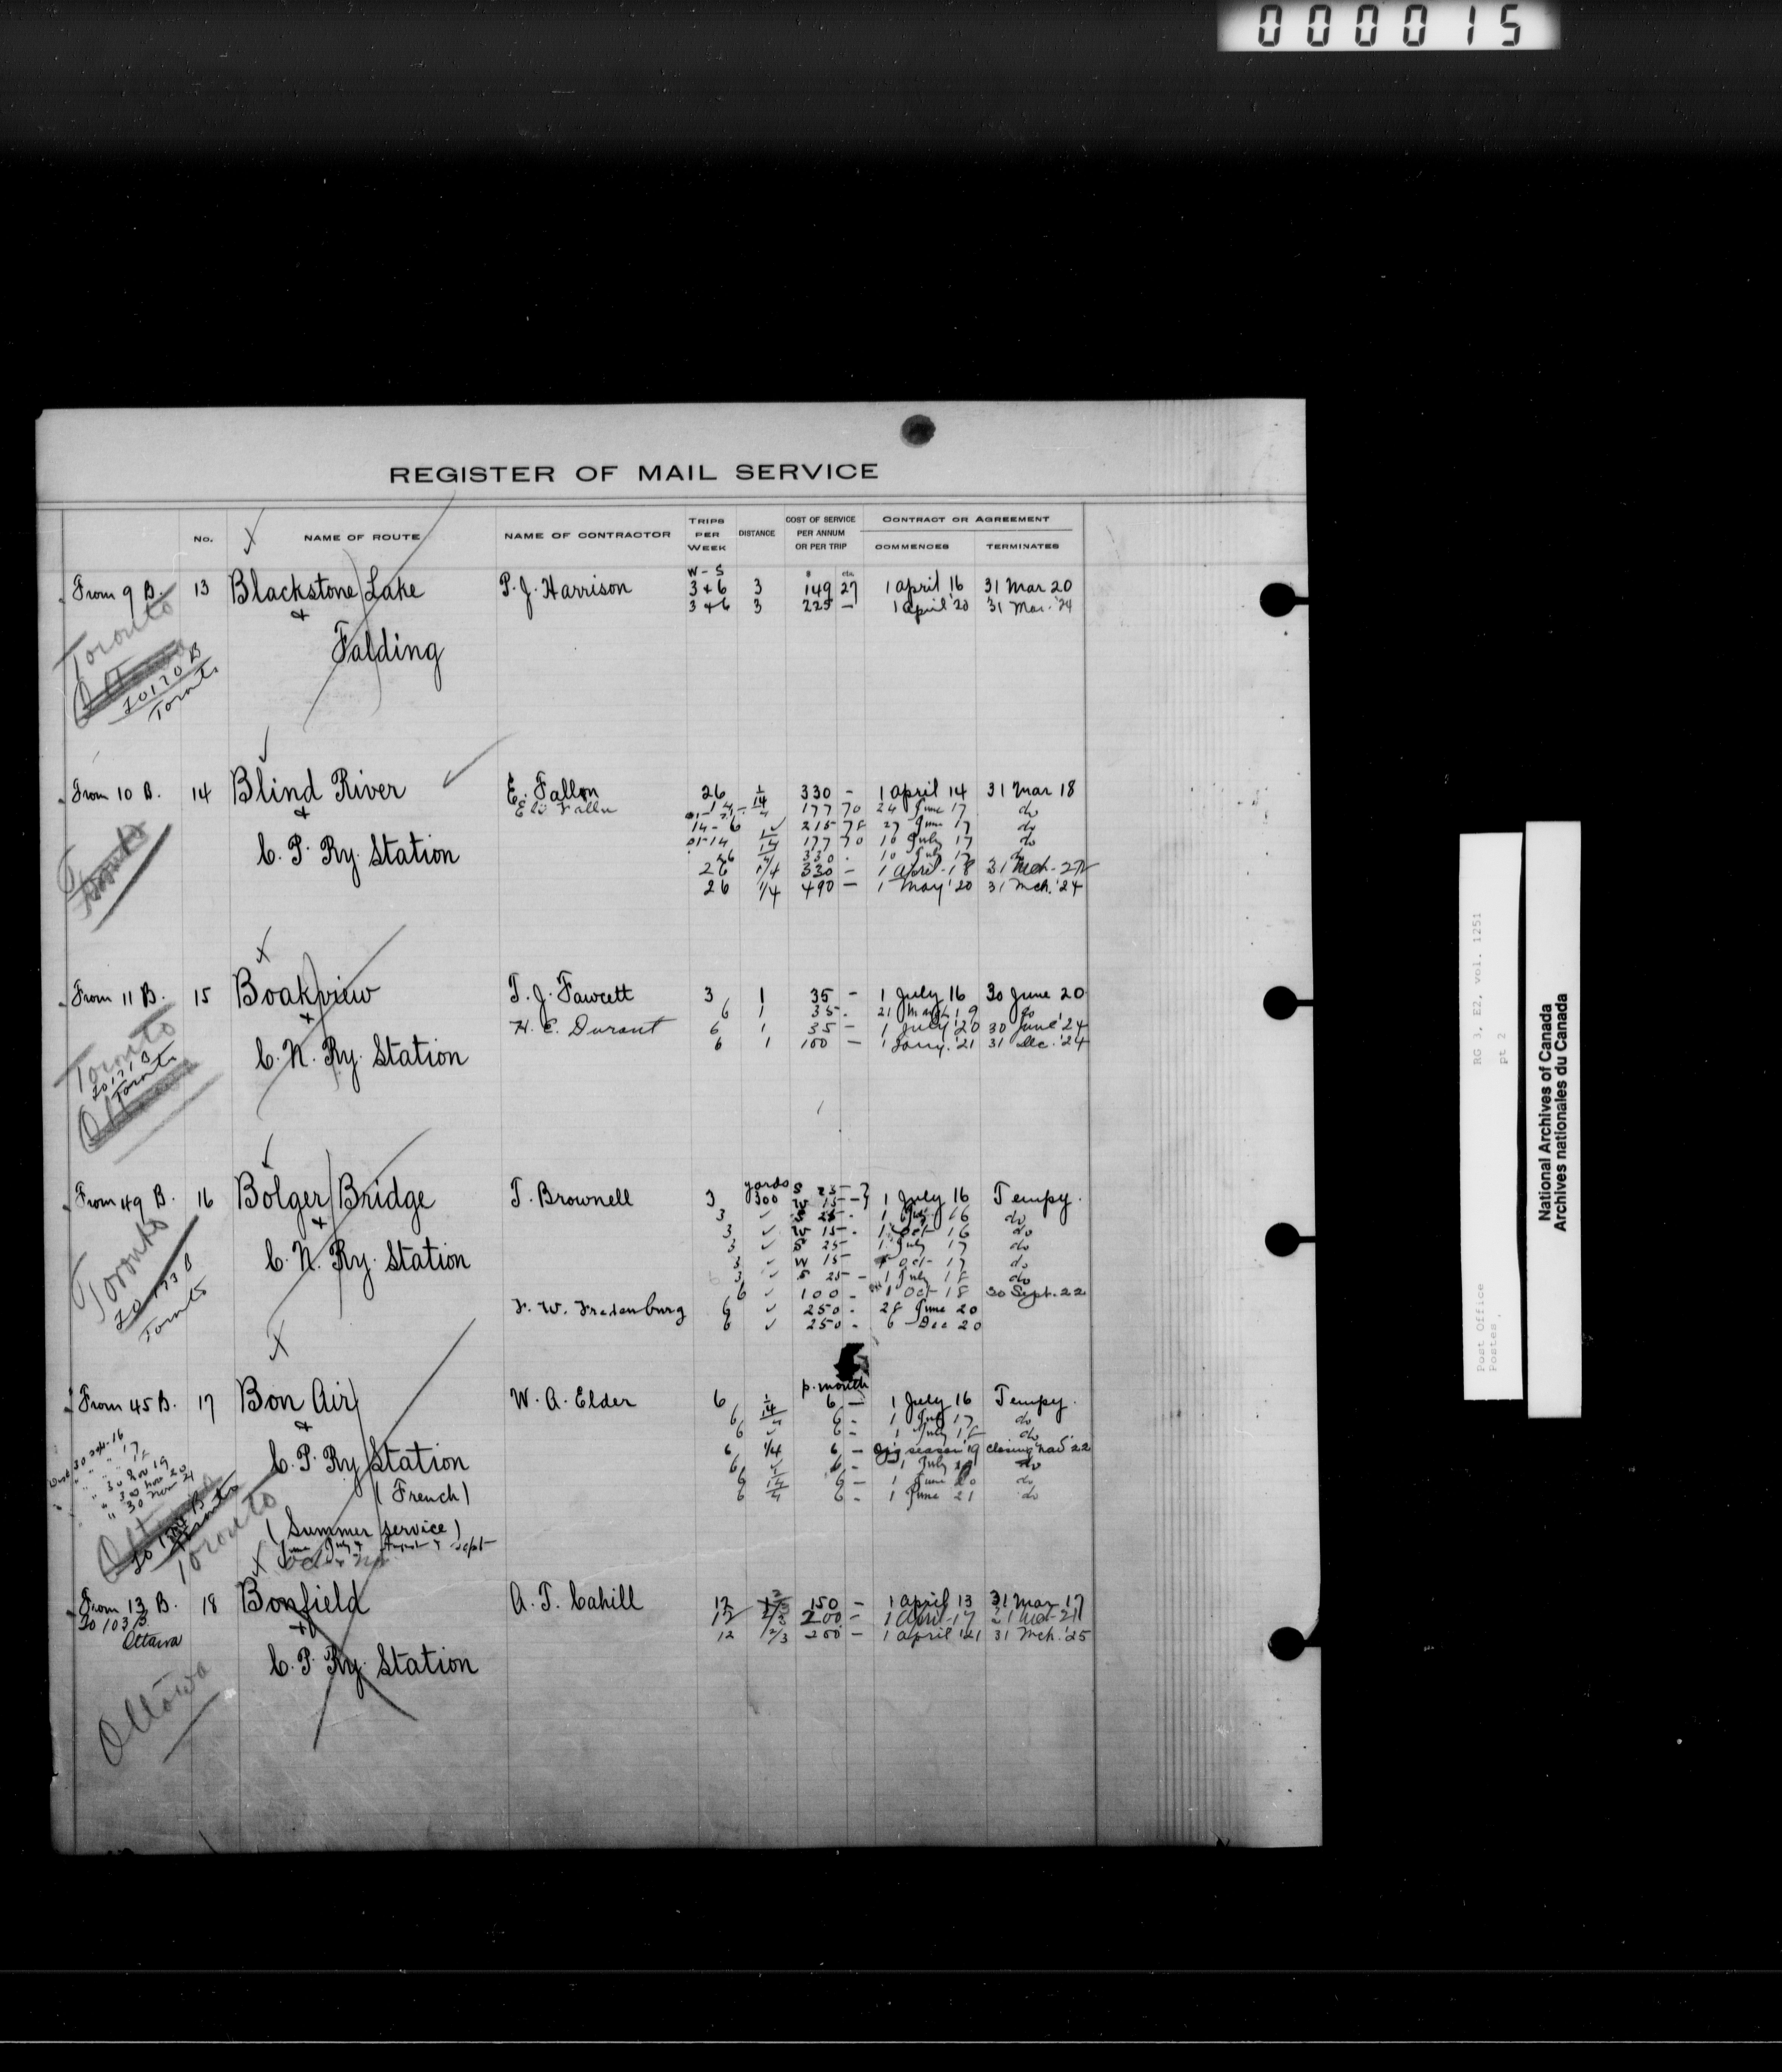 000015
REGISTER OF MAIL SERVICE
No. NAME OF ROUTE NAME OF CONTRACTOR TRIPS PER WEEK DISTANCE COST OF SERVICE PER ANNUM OR PER TRIP CONTRACT OR AGREEMENT COMMENCES TERMINATES
W - S
From 9 B. 13 Blackstone Lake P. J. Harrison 3 + 6 3 149 27 1 April 16 31 Mar 20
& 3 + 6 3 225 — 1 April '20 31 Mar. '24
Toronto
Falding
Ottawa
To 170 B
Toronto
From 10 B. 14 Blind River E. Fallon 26 1/4 330 - 1 April 14 31 Mar 18
& 177 70 24 June 17 do
14 - 6 215 78 27 June 17 do
C. P. Ry. Station 177 70 10 July 17 do
26 330 . 10 July 17 do
26 1/4 330 — 1 April - 18 31 Mch - 22
26 1/4 490 — 1 May '20 31 Mch. '24
Toronto
From 11 B. 15 Boakview T. J. Fawcett 3 1 35 - 1 July 16 30 June 20
& 6 1 35 . 21 March 19 do
H. E. Durant 6 1 35 — 1 July '20 30 June '24
C. N. Ry. Station 6 1 100 — 1 Jany. '21 31 Dec. '24
Toronto
To 171 B
Toronto
Ottawa
yards S 25
From 49 B. 16 Bolger Bridge T. Brownell 3 300 W 15 - 1 July 16 Tempy.
& 3 ✓ S 25 . 1 July 16 do
3 ✓ W 15 . 1 Oct 16 do
C. N. Ry. Station 3 ✓ S 25 1 July 17 do
3 ✓ W 15 Oct - 17 do
3 ✓ S 25 - 1 July 18 do
6 ✓ 100 - 1 Oct 18 30 Sept. 22
F. W. Fredenburg 6 ✓ 250 . 28 June 20
6 ✓ 250 - 6 Dec 20
Toronto
To 173 B
Toronto
p. month
From 45 B. 17 Bon Air W. A. Elder 6 1/4 6 — 1 July 16 Tempy.
& 6 6 - 1 July 17 do
6 ✓ 6 - 1 July 18 do
C. P. Ry Station 6 1/4 6 — season '19 closing nav '22
6 6 - 1 July do
(French) 6 6 — 1 June 20 do
6 6 - 1 June 21 do
30 Sept - 16
" " 17
" " 18
" 30 Nov 19
" 30 Nov 20
" 30 Nov 21
(Summer service)
June July & August & Sept
Ottawa
Toronto
From 13 B. 18 Bonfield A. T. Cahill 12 150 — 1 April 13 31 Mar 17
To 103 B. & 12 2/3 200 — 1 April - 17 31 Mch - 21
Ottawa 12 2/3 200 — 1 April '21 31 Mch. '25
C. P. Ry. Station
Ottawa
Post Office RG 3, E2, vol. 1251
Postes, pt 2
National Archives of Canada
Archives nationales du Canada